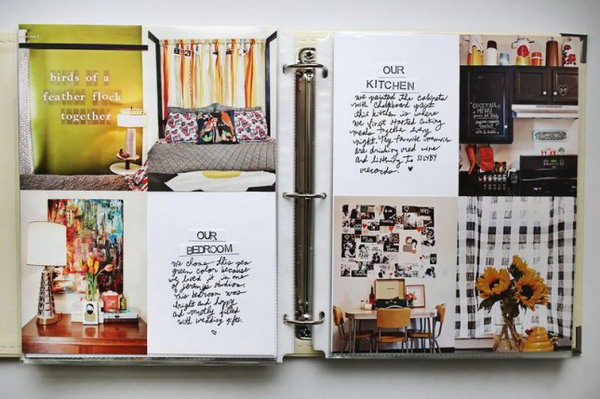 birds of a
feather flock
together
OUR
BEDROOM
We chose this
green color because
we lived it in one
of
This bedroom was
bright and happy
and mostly filled
with wedding gifts.
OUR
KITCHEN
We painted the cabinets
with chalkboard paint
this kitchen is where
we first started cooking
meals together every
night. My favorite memories
are drinking red wine
and listening to
records. ♥
COCKTAIL